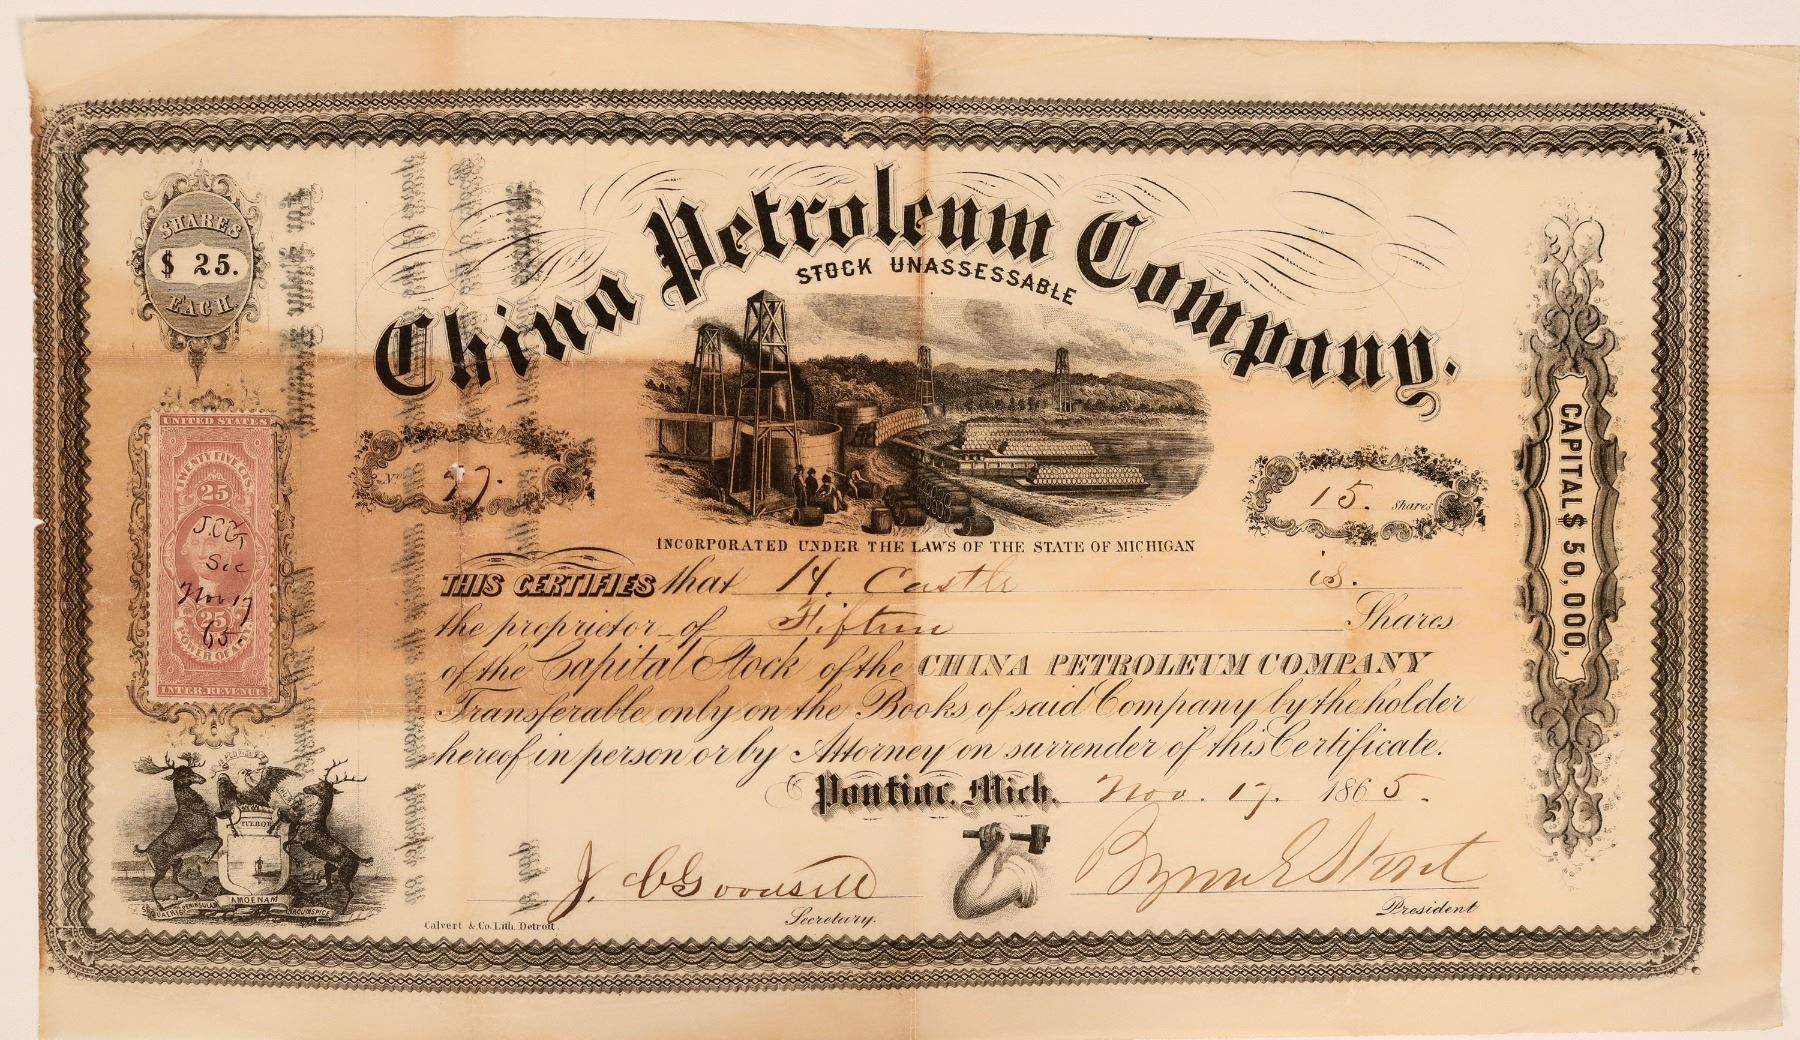 China Petroleum Company.
STOCK UNASSESSABLE
SHARES
$ 25.
EACH.
CAPITAL $ 50,000,
UNITED STATES
TWENTY FIVE CTS.
25
J.C.G.
Sec
Nov 17
25
65.
POWER OF AT'Y
INTER. REVENUE
No 97.
15. Shares
INCORPORATED UNDER THE LAWS OF THE STATE OF MICHIGAN
THIS CERTIFIES that H. Castle is.
the proprietor of Fifteen Shares
of the Capital Stock of the CHINA PETROLEUM COMPANY
Transferable only on the Books of said Company by the holder
hereof in person or by Attorney on surrender of this Certificate.
Pontiac, Mich. Nov. 17. 1865.
TUEBOR
SI QUAERIS PENINSULAM AMOENAM CIRCUMSPICE
J. C. Goodsell
Secretary.
President
Calvert & Co. Lith. Detroit.